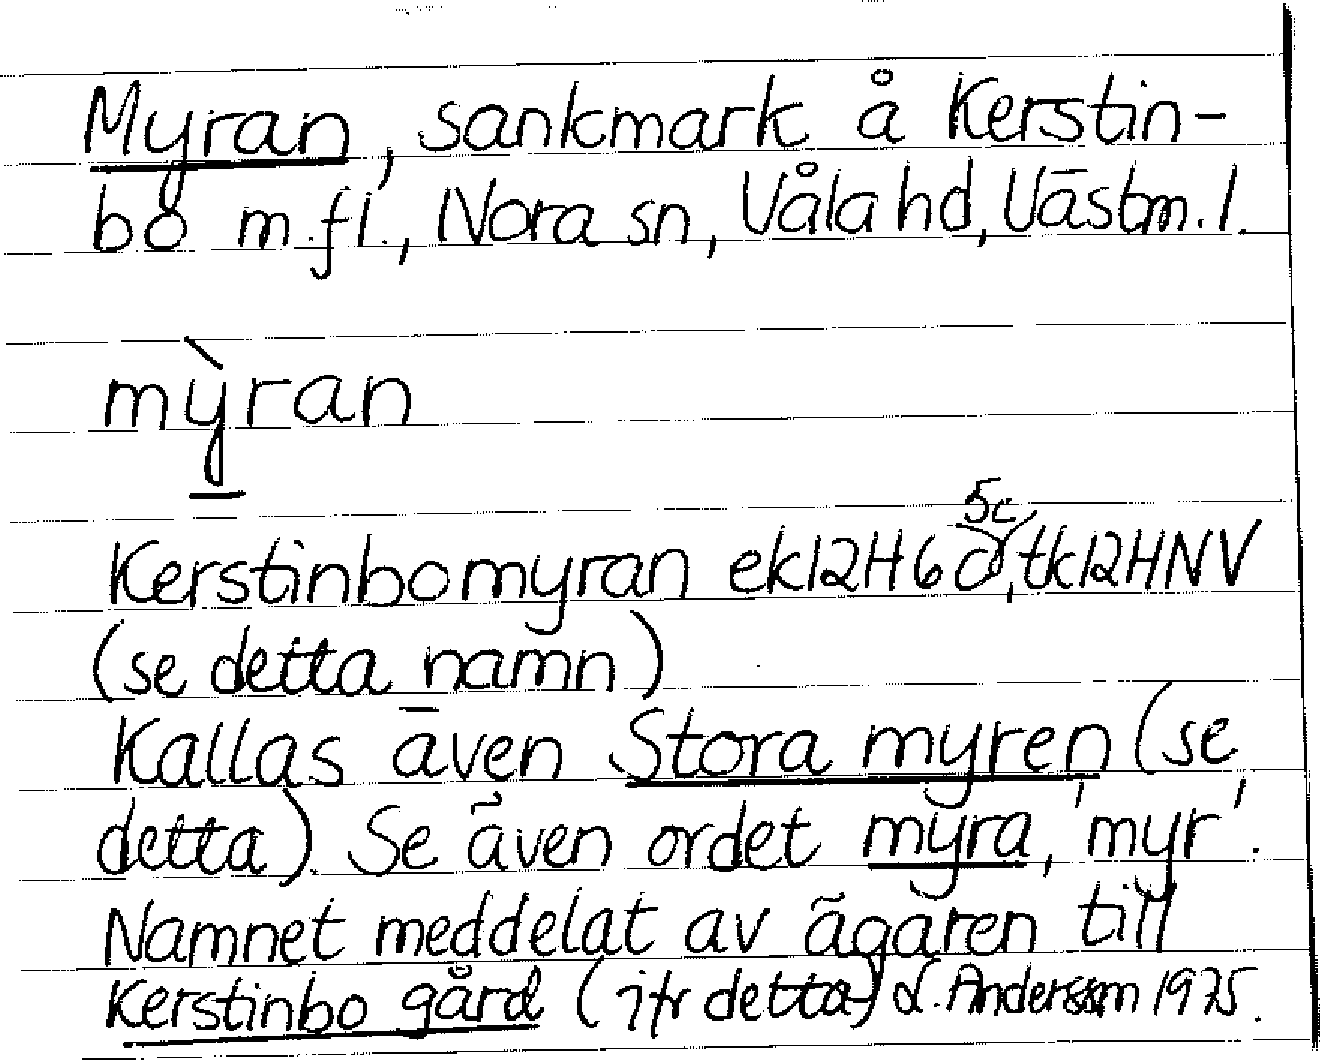 Myran, sankmark å Kerstin-
bo m.fl., Nora sn, Våla hd, Västm.l.
mỳran
Kerstinbomyran ek12H6 5c, tk12HNV
(se detta namn)
Kallas även Stora myren (se
detta). Se även ordet myra, 'myr'.
Namnet meddelat av ägaren till
Kerstinbo gård (jfr detta) d. Andersson 1975.